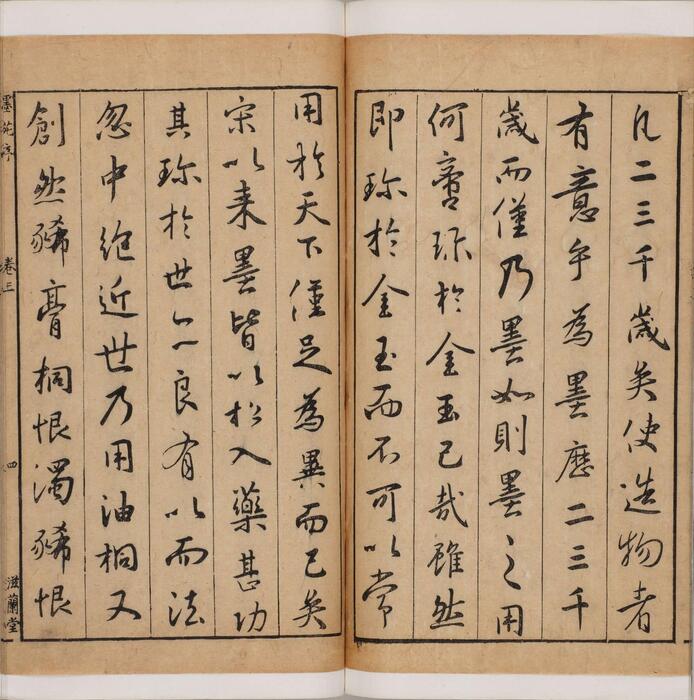 凡二三千歲矣使造物者
有意乎為墨歷二三千
歲而僅乃墨如則墨之用
何啻珎於金玉已哉雖然
即珎於金玉而不可以常
用於天下僅足為異而已矣
宋以来墨皆以松入藥甚功
其珎於世亦良有以而法
忽中絕近世乃用油桐又
創然豨膏桐恨濁豨恨
墨苑序 卷三 四 滋蘭堂